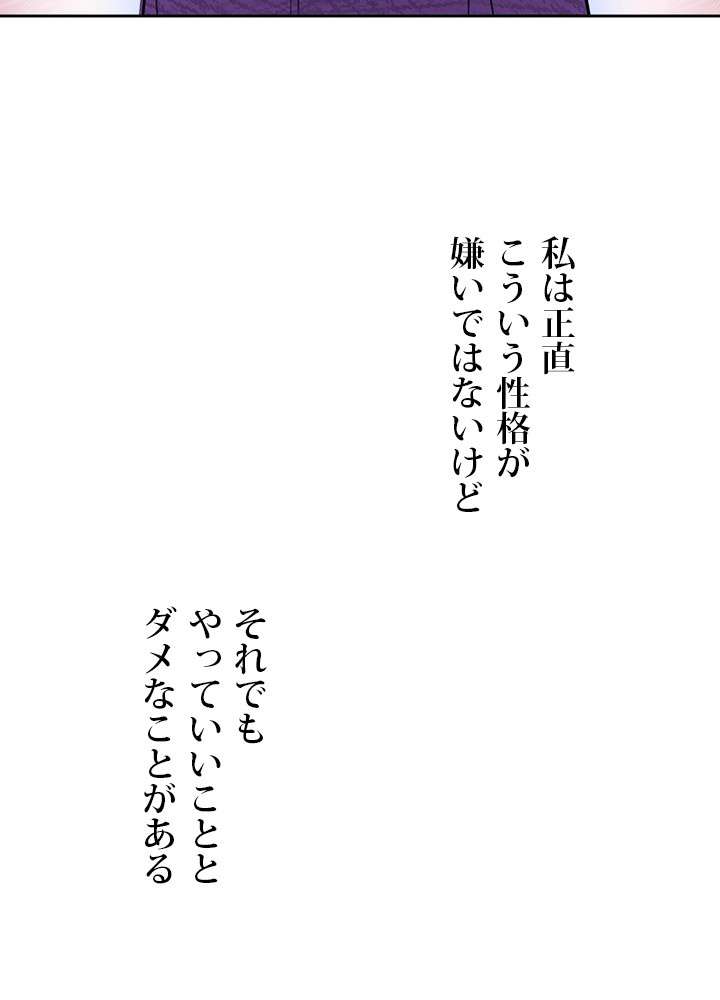 私は正直
こういう性格が
嫌いではないけど
それでも
やっていいことと
ダメなことがある